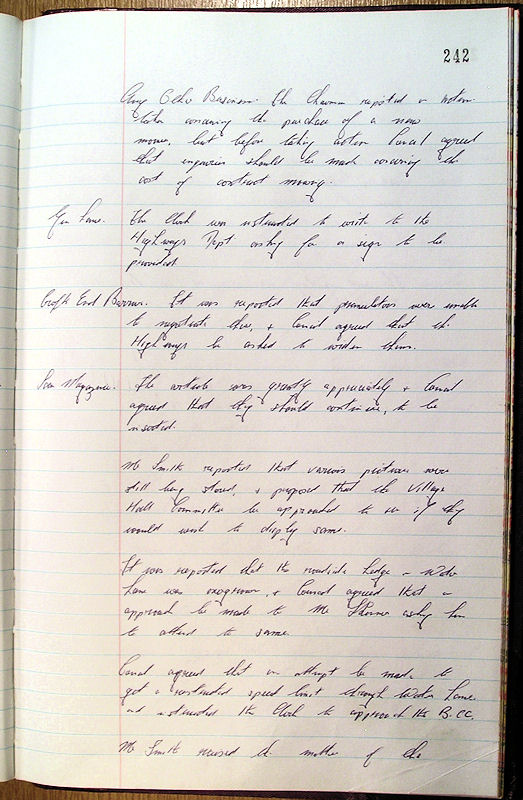 242
Any Other Business. The Chairman reported on action
taken concerning the purchase of a new
mower, but before taking action Council agreed
that enquiries should be made concerning the
cost of contract mowing.
Lane. The Clerk was instructed to write to the
Highways Dept asking for a sign to be
provided
Croft End Barrow. It was reported that perambulators were unable
to negotiate this, & Council agreed that the
Highways be asked to widen them.
Magazine. The article was greatly appreciated & Council
agreed that they should continue, to be
inserted.
Mr Smith reported that various pictures were
still being stored, & proposed that the Village
Hall Committee be approached to see if they
would wish to display same.
It was reported that the roadside hedge in Water
Lane was overgrown, & Council agreed that an
approach be made to Mr asking him
to attend to same.
Council agreed that an attempt be made to
get a restricted speed limit through Water Lane
and instructed the Clerk to approach the B.C.C.
Mr Smith raised the matter of the